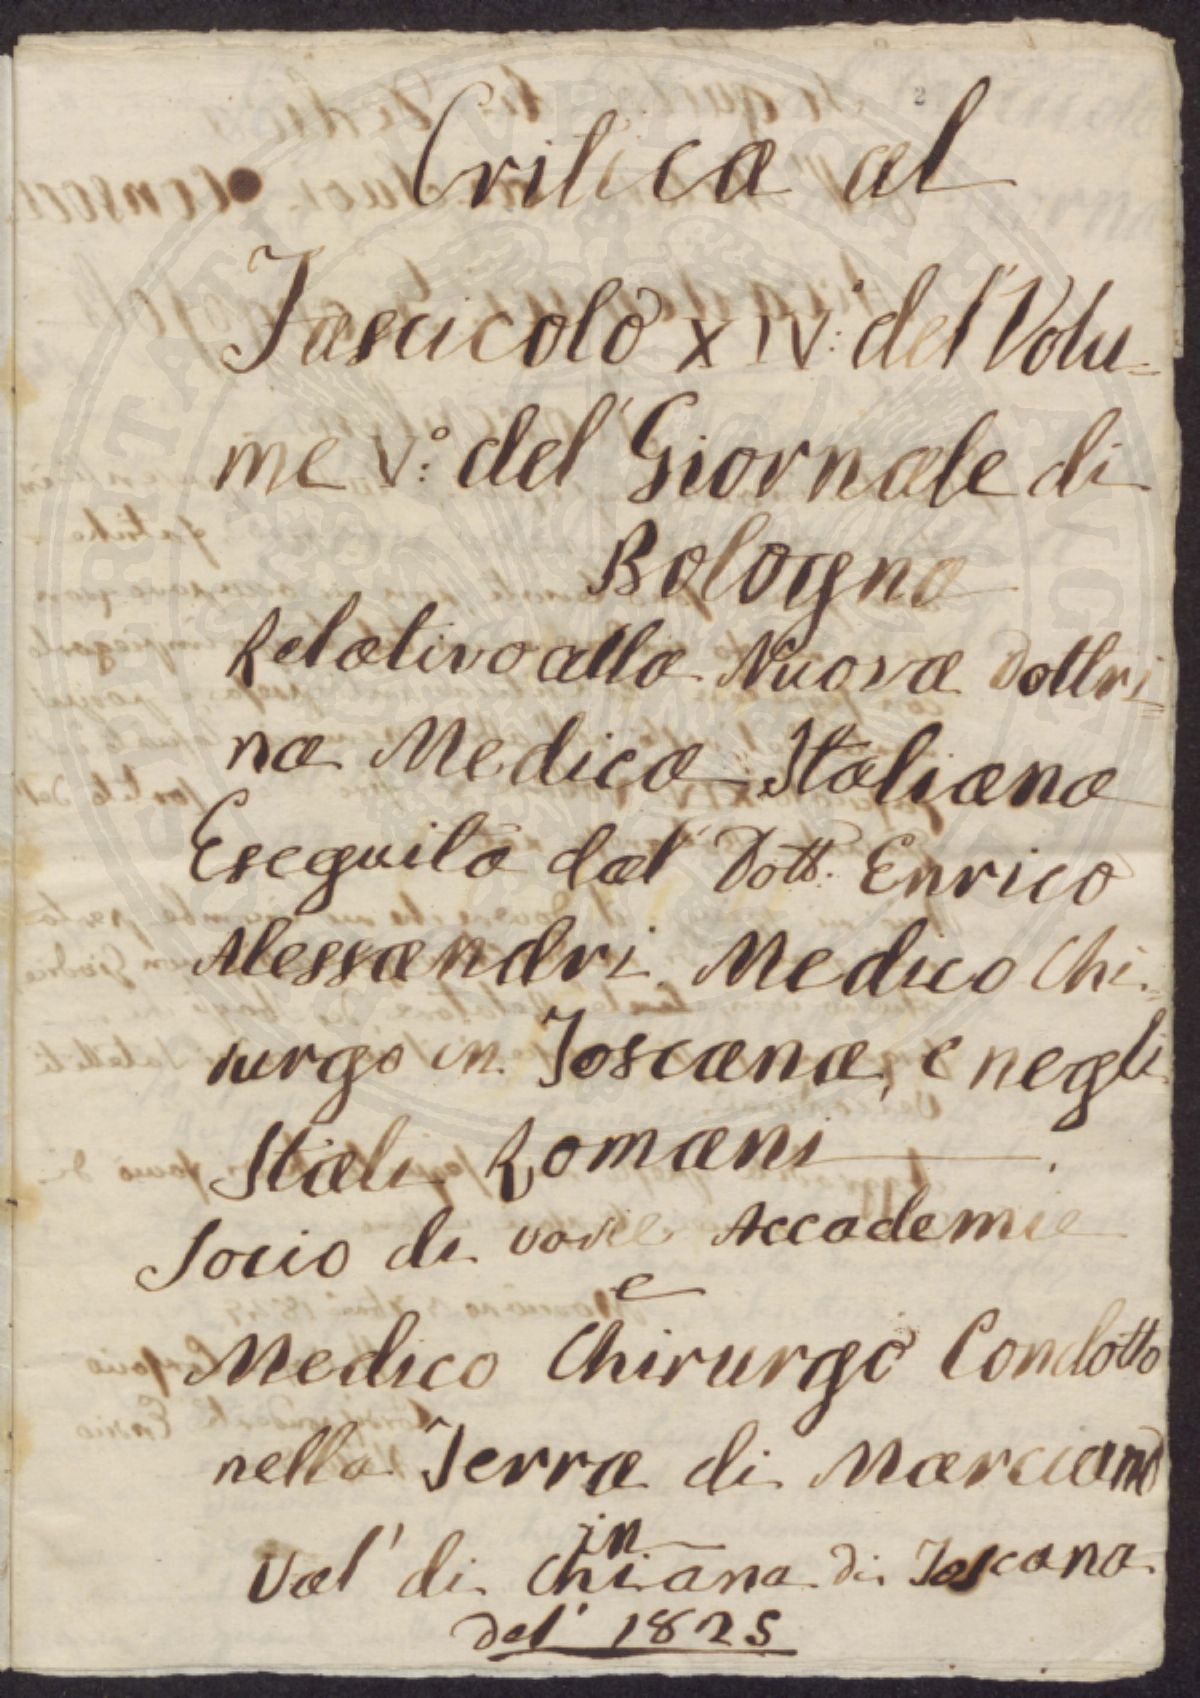 2
Critica al
Fascicolo XIV: del' Volu=
me V:° del' Giornale di
Bologna
Relativo alla Nuova Dottri=
na Medica Italiana
Eseguita dal' Dott. Enrico
Alessandri Medico Chi=
rurgo in Toscana, e negli
Stati Romani.
Socio di varie Accademie
e
Medico Chirurgo Condotto
nella Terra di Marciano
in
Val' di Chiana di Toscana
del' 1825